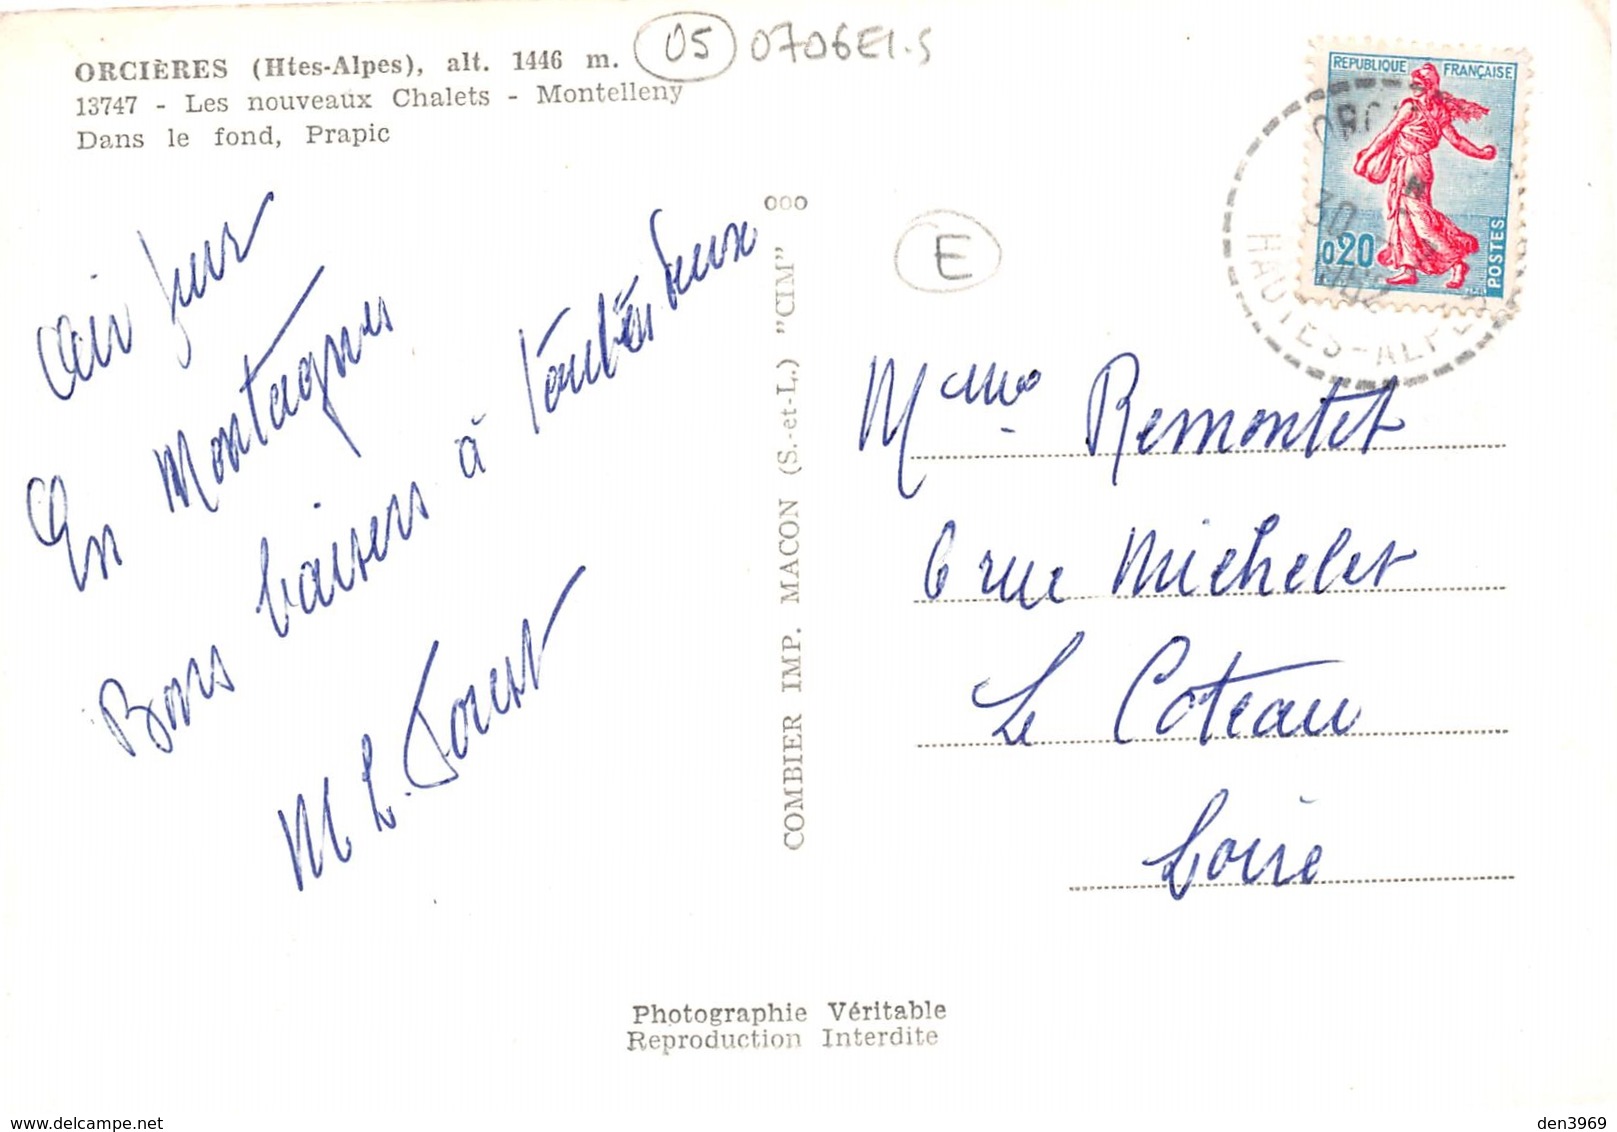 ORCIÈRES (Htes-Alpes), alt. 1446 m.
13747 - Les nouveaux Chalets - Montelleny
Dans le fond, Prapic
05 0706E1.S
Air pur
En Montagnes
Bons baisers à toutes deux
M L.
E
000
COMBIER IMP. MACON (S.-et-L.) "CIM"
REPUBLIQUE FRANÇAISE
0,20
POSTES
30
HAUTES-ALPES
Mme Remontet
6 rue Michelet
Le Coteau
Loire
Photographie Véritable
Reproduction Interdite
den3969
www.delcampe.net